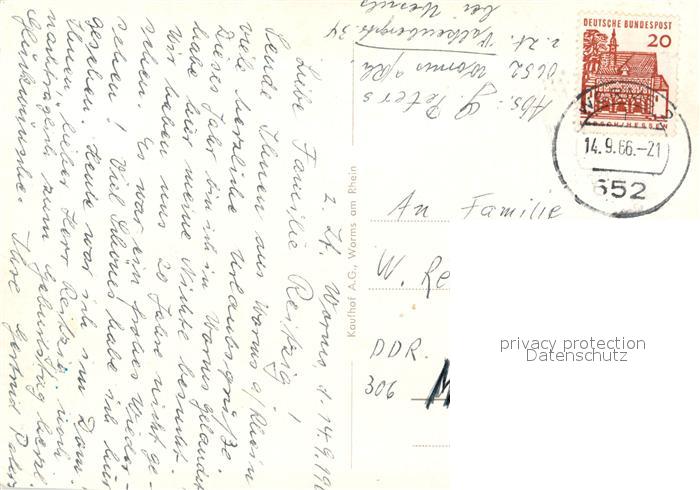 z. Zt. Worms, d. 14.9.19
Liebe Familie Reitzig!
Sende Ihnen aus Worms a/Rhein
viele herzliche Urlaubsgrüße.
Dieses Jahr bin ich in Worms gelandet
habe hier meine Nichte besucht.
Wir haben uns 20 Jahre nicht ge-
sehen. Es war ein frohes Wieder-
sehen! Viel Schönes habe ich hier
gesehen. Heute war ich im Dom.
Ihnen, lieber Herr Reitzig noch
nachträglich zum Geburtstag herzl.
Glückwünsche. Ihre Gertrud Peters
Kaufhof A.G., Worms am Rhein
Abs: G. Peters
6652 Worms a/Rh.
z. Zt. 34
bei
DEUTSCHE BUNDESPOST
20
LORSCH/HESSEN
14.9.66.-21
652
An Familie
W. Re
DDR.
306 M
privacy protection
Datenschutz